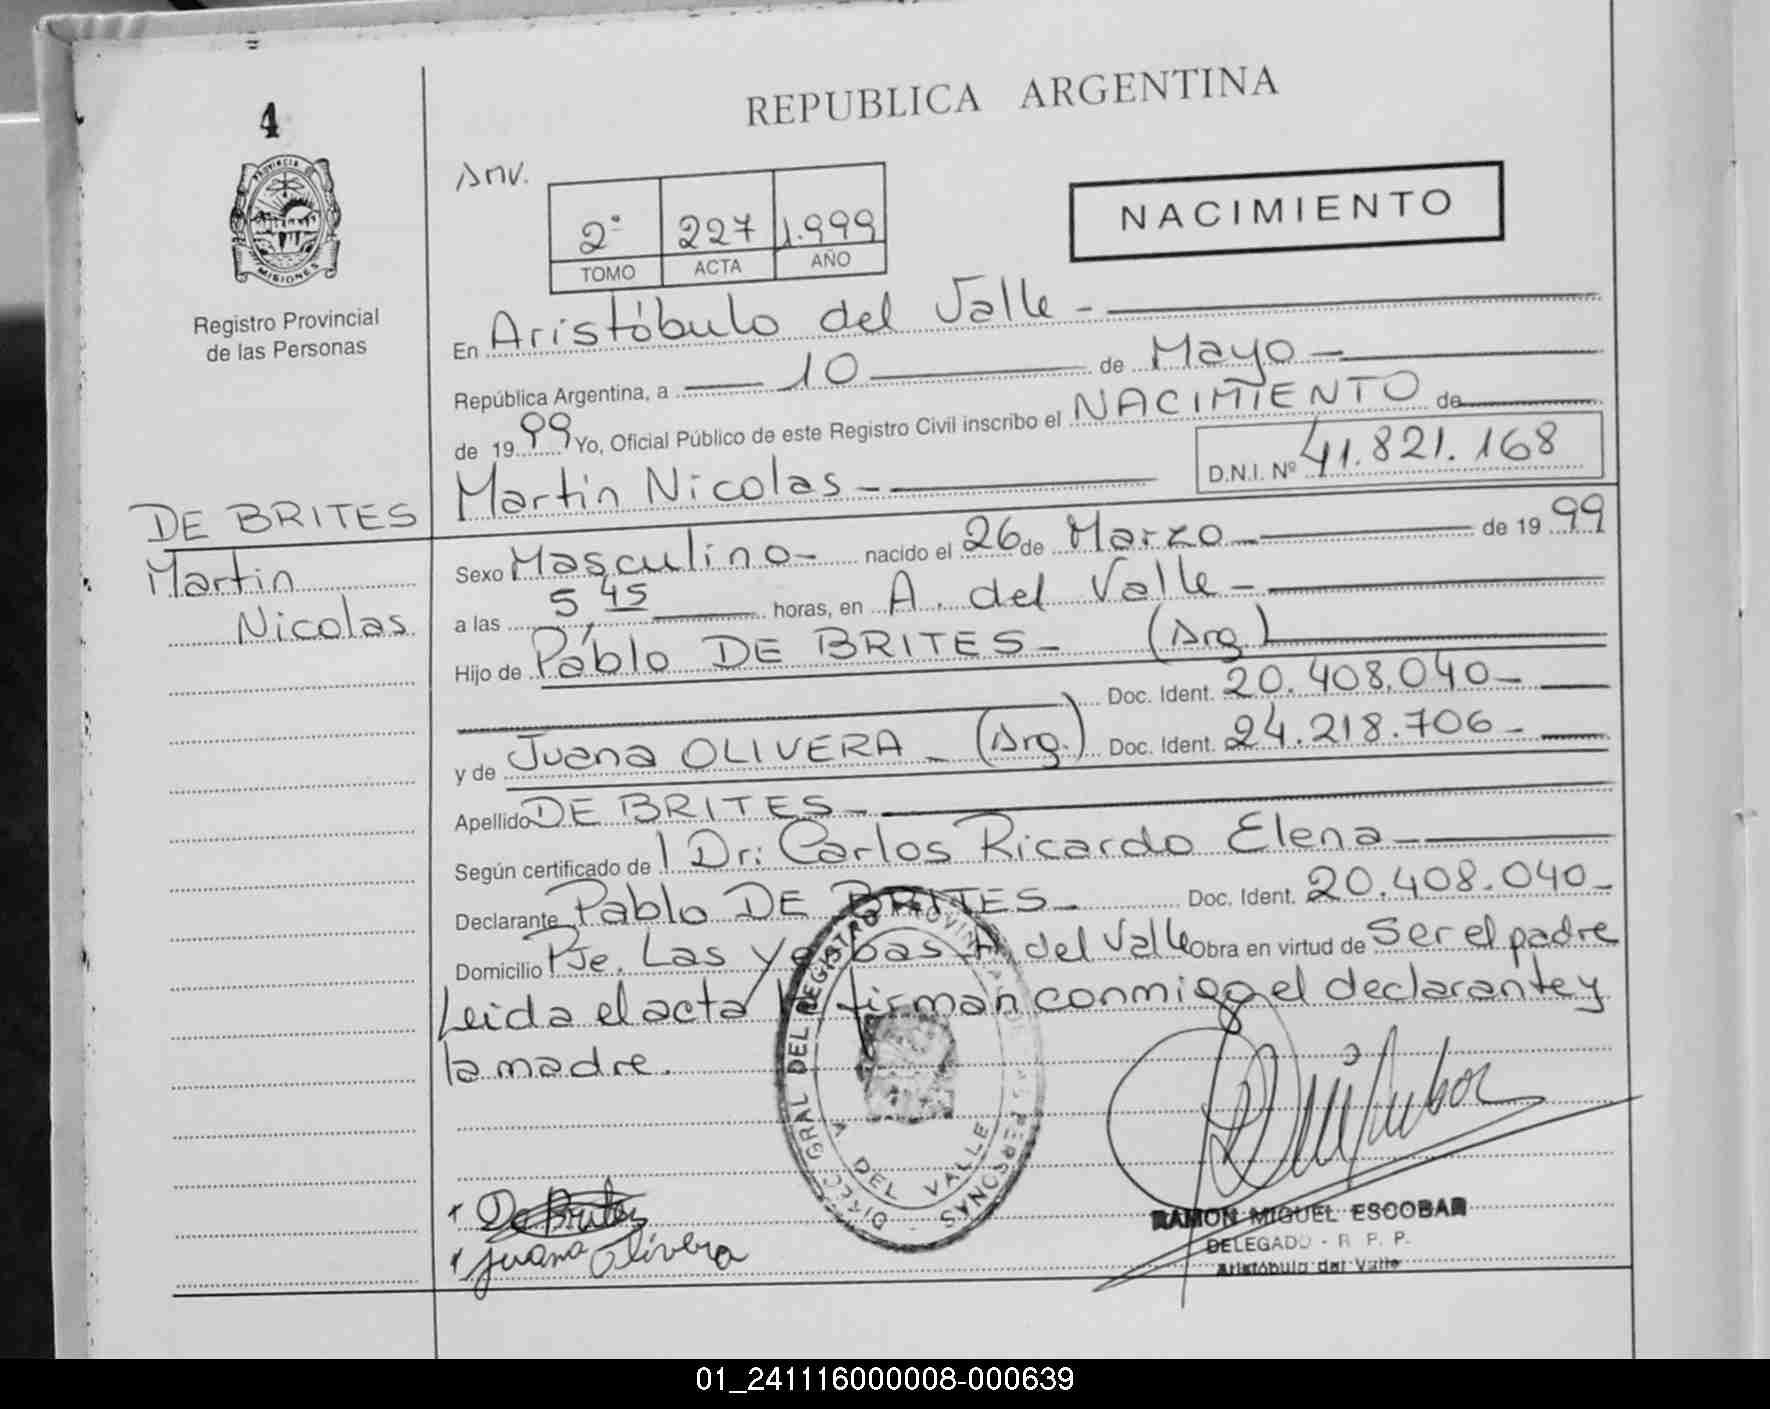 4
PROVINCIA DE
MISIONES
Registro Provincial
de las Personas
DE BRITES
Martin
Nicolas
REPUBLICA ARGENTINA
NACIMIENTO
2° 227 1.999
TOMO ACTA AÑO
En Aristóbulo del Valle -
República Argentina, a 10 de Mayo -
de 1999 Yo, Oficial Público de este Registro Civil inscribo el NACIMIENTO de
Martin Nicolas - D.N.I. Nº 41.821.168
Sexo Masculino - nacido el 26 de Marzo - de 1999
a las 5,45 horas, en A. del Valle -
Hijo de Pablo DE BRITES - (Arg.)
Doc. Ident. 20.408.040 -
y de Juana OLIVERA - (Arg.) Doc. Ident. 24.218.706 -
Apellido DE BRITES -
Según certificado de Dr: Carlos Ricardo Elena -
Declarante Pablo DE BRITES - Doc. Ident. 20.408.040 -
Domicilio Pje. Las Yerbas A. del Valle Obra en virtud de Ser el padre
Leida el acta la firman conmigo el declarante y
la madre.
DIREC. GRAL DEL REGISTRO PROVINCIAL DE LAS PERSONAS
A DEL VALLE
De Brites
Juana Olivera
RAMON MIGUEL ESCOBAR
DELEGADO - R. P. P.
Aristóbulo del Valle
01_241116000008-000639